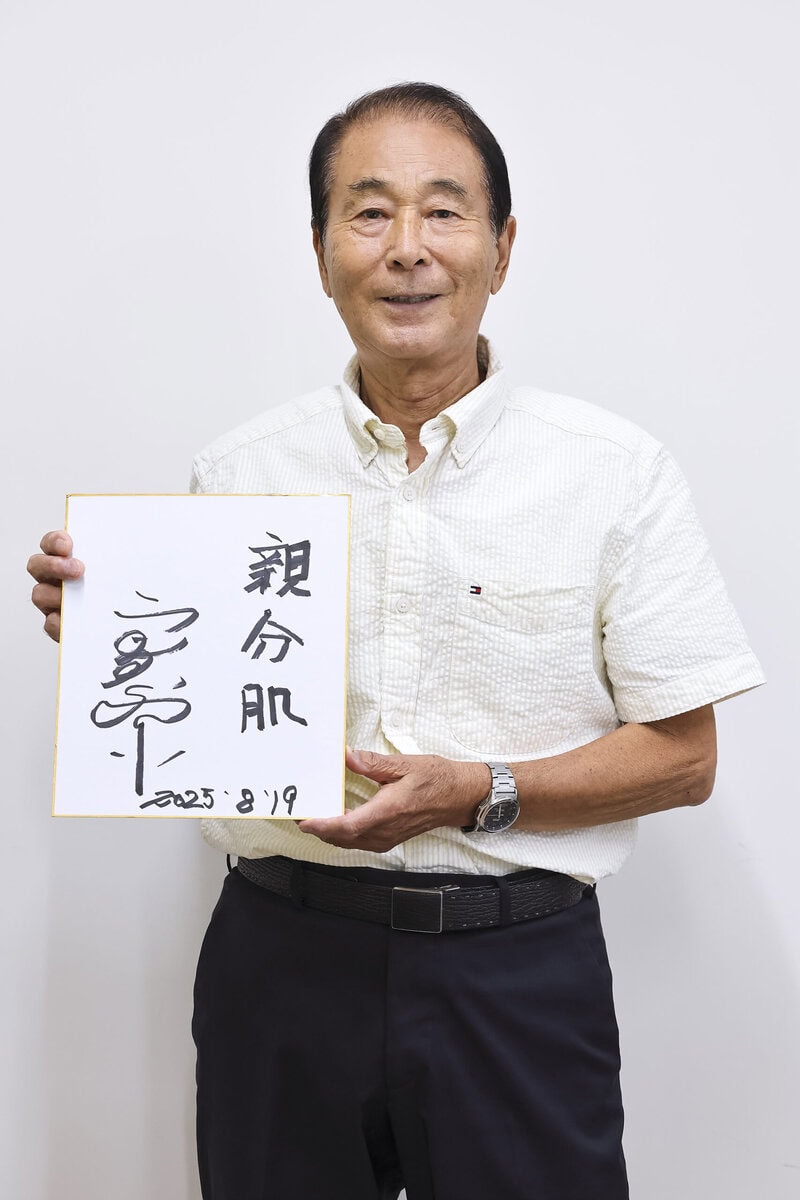 親分肌
2025.8.19